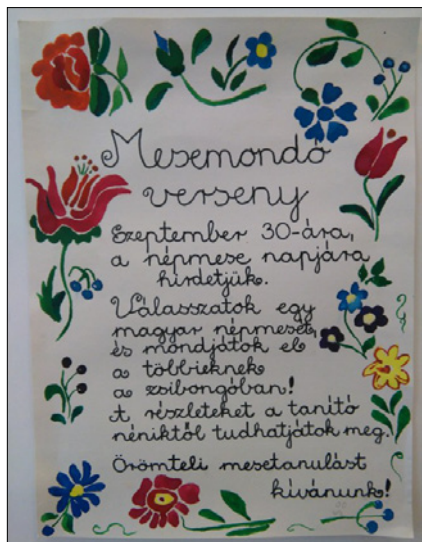 Mesemondó
verseny
Szeptember 30-ára,
a népmese napjára
hirdetjük.
Válasszatok egy
magyar népmesét,
és mondjátok el
a többieknek
a zsibongóban!
A részleteket a tanító
néniktől tudhatjátok meg.
Örömteli mesetanulást
kívánunk!